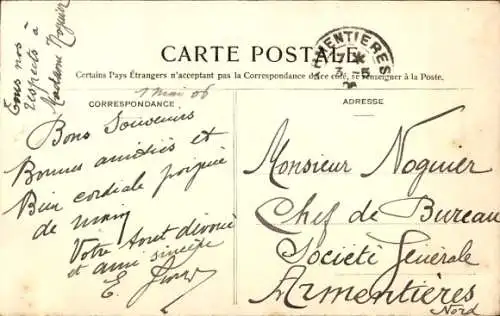 Tous nos
respects à
Madame Noguier
CARTE POSTALE
ARMENTIERES
Certains Pays Étrangers n'acceptant pas la Correspondance de ce côté, se renseigner à la Poste.
1 Mai 06
CORRESPONDANCE
Bons Souvenirs
Bonnes amitiés et
Bien cordiale poignée
de main
Votre tout dévoué
et ami sincère
E.
ADRESSE
Monsieur Noguier
Chef de Bureau
Société Générale
Armentières
Nord